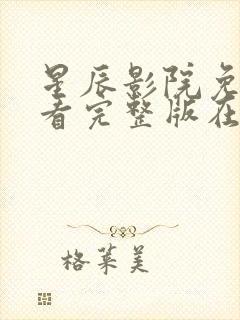 星辰影院免
看完整版在
格莱美